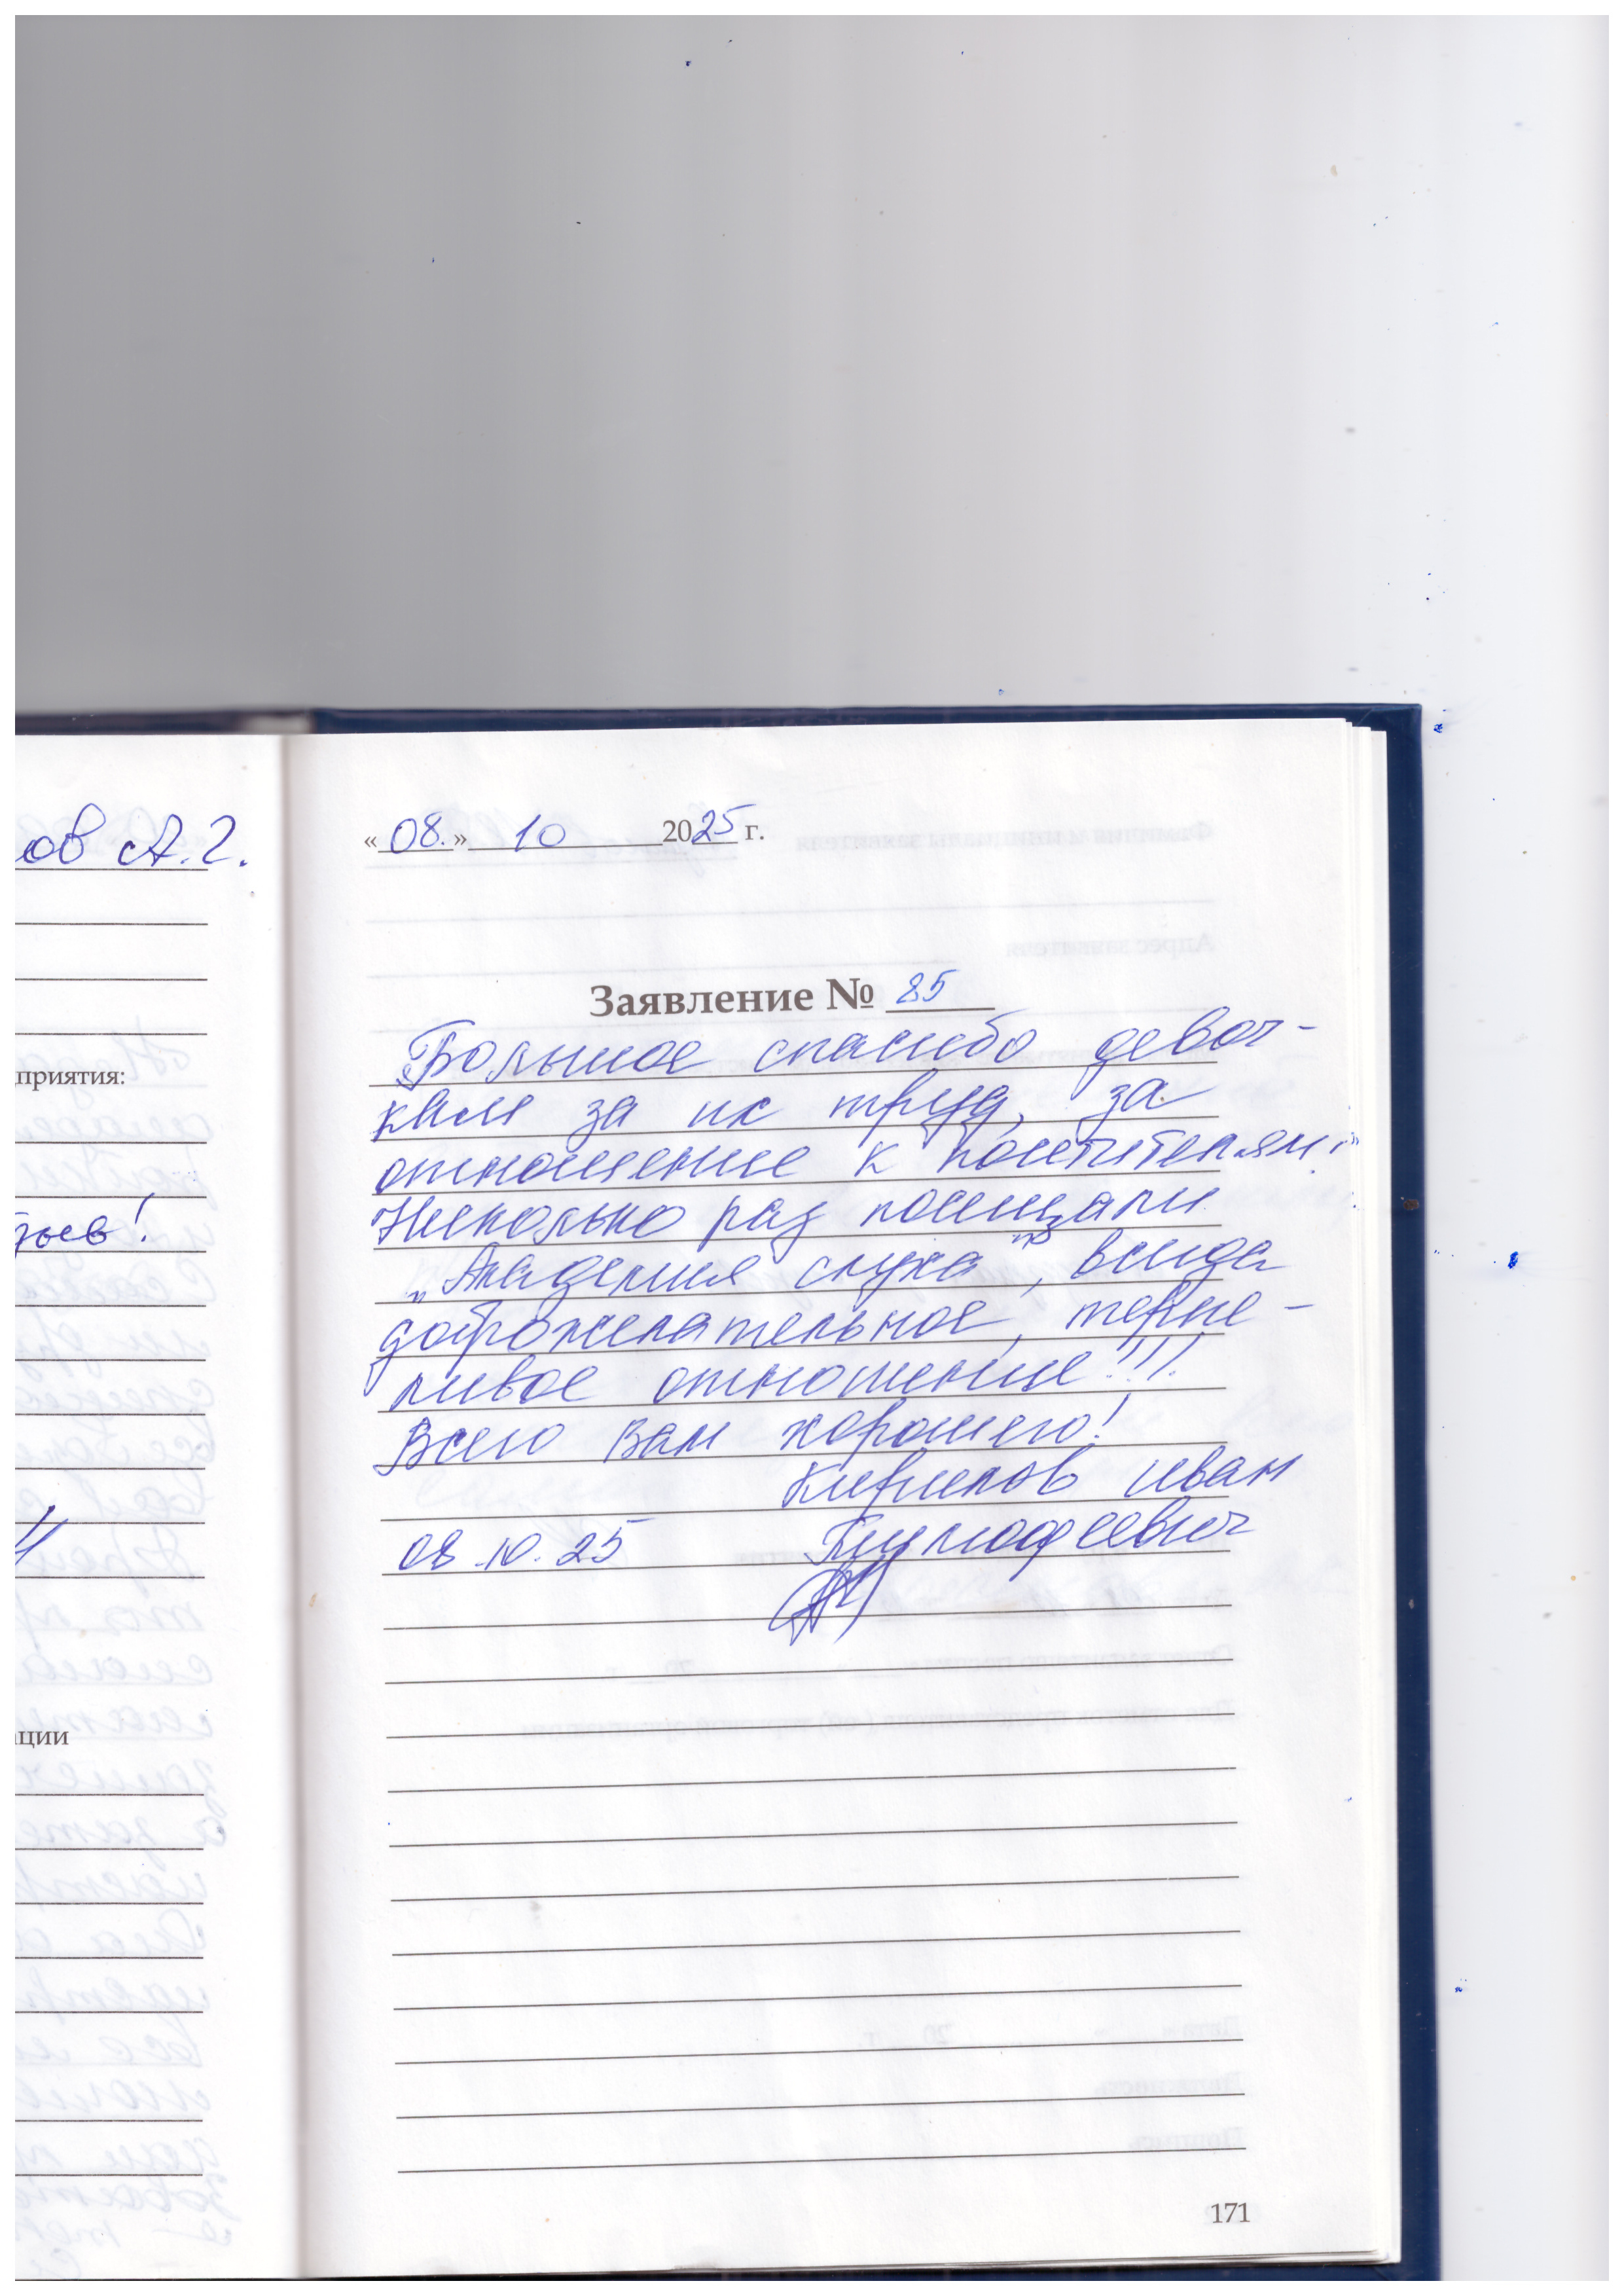 ов А.Г.
приятия:
ции
«08.» 10 2025 г.
Заявление № 85
Большое спасибо девоч-
кам за их труд, за
отношение к посетителям!
Несколько раз посещали
„Академия слуха", всегда
доброжелательное, терпе-
ливое отношение!!!
Всего Вам хорошего!
Кирилов Иван
08.10.25 Тимофеевич
171